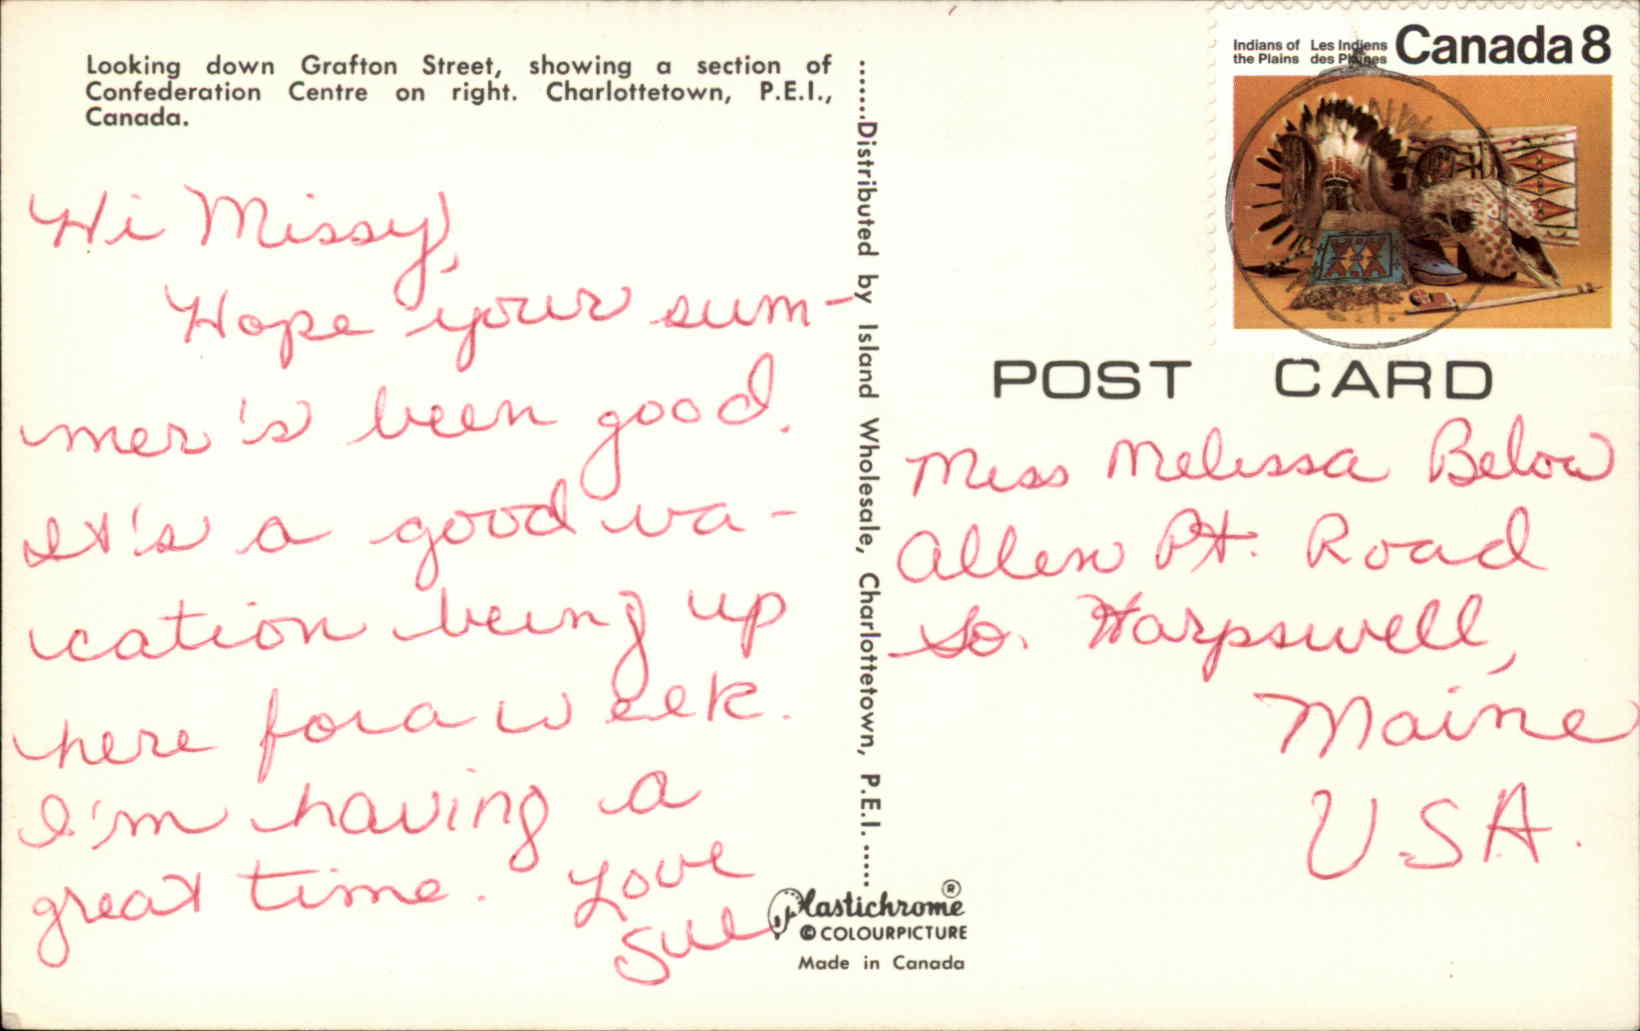 Looking down Grafton Street, showing a section of
Confederation Centre on right. Charlottetown, P.E.I.,
Canada.
Hi Missy,
Hope your sum-
mer's been good.
It's a good va-
cation being up
here for a week.
I'm having a
great time. Love
Sue
......Distributed by Island Wholesale, Charlottetown, P.E.I. ......
Plastichrome ®
© COLOURPICTURE
Made in Canada
Indians of the Plains
Les Indiens des Plaines
Canada 8
POST CARD
Miss Melissa Below
Allen Pt. Road
So. Harpswell,
Maine
USA.